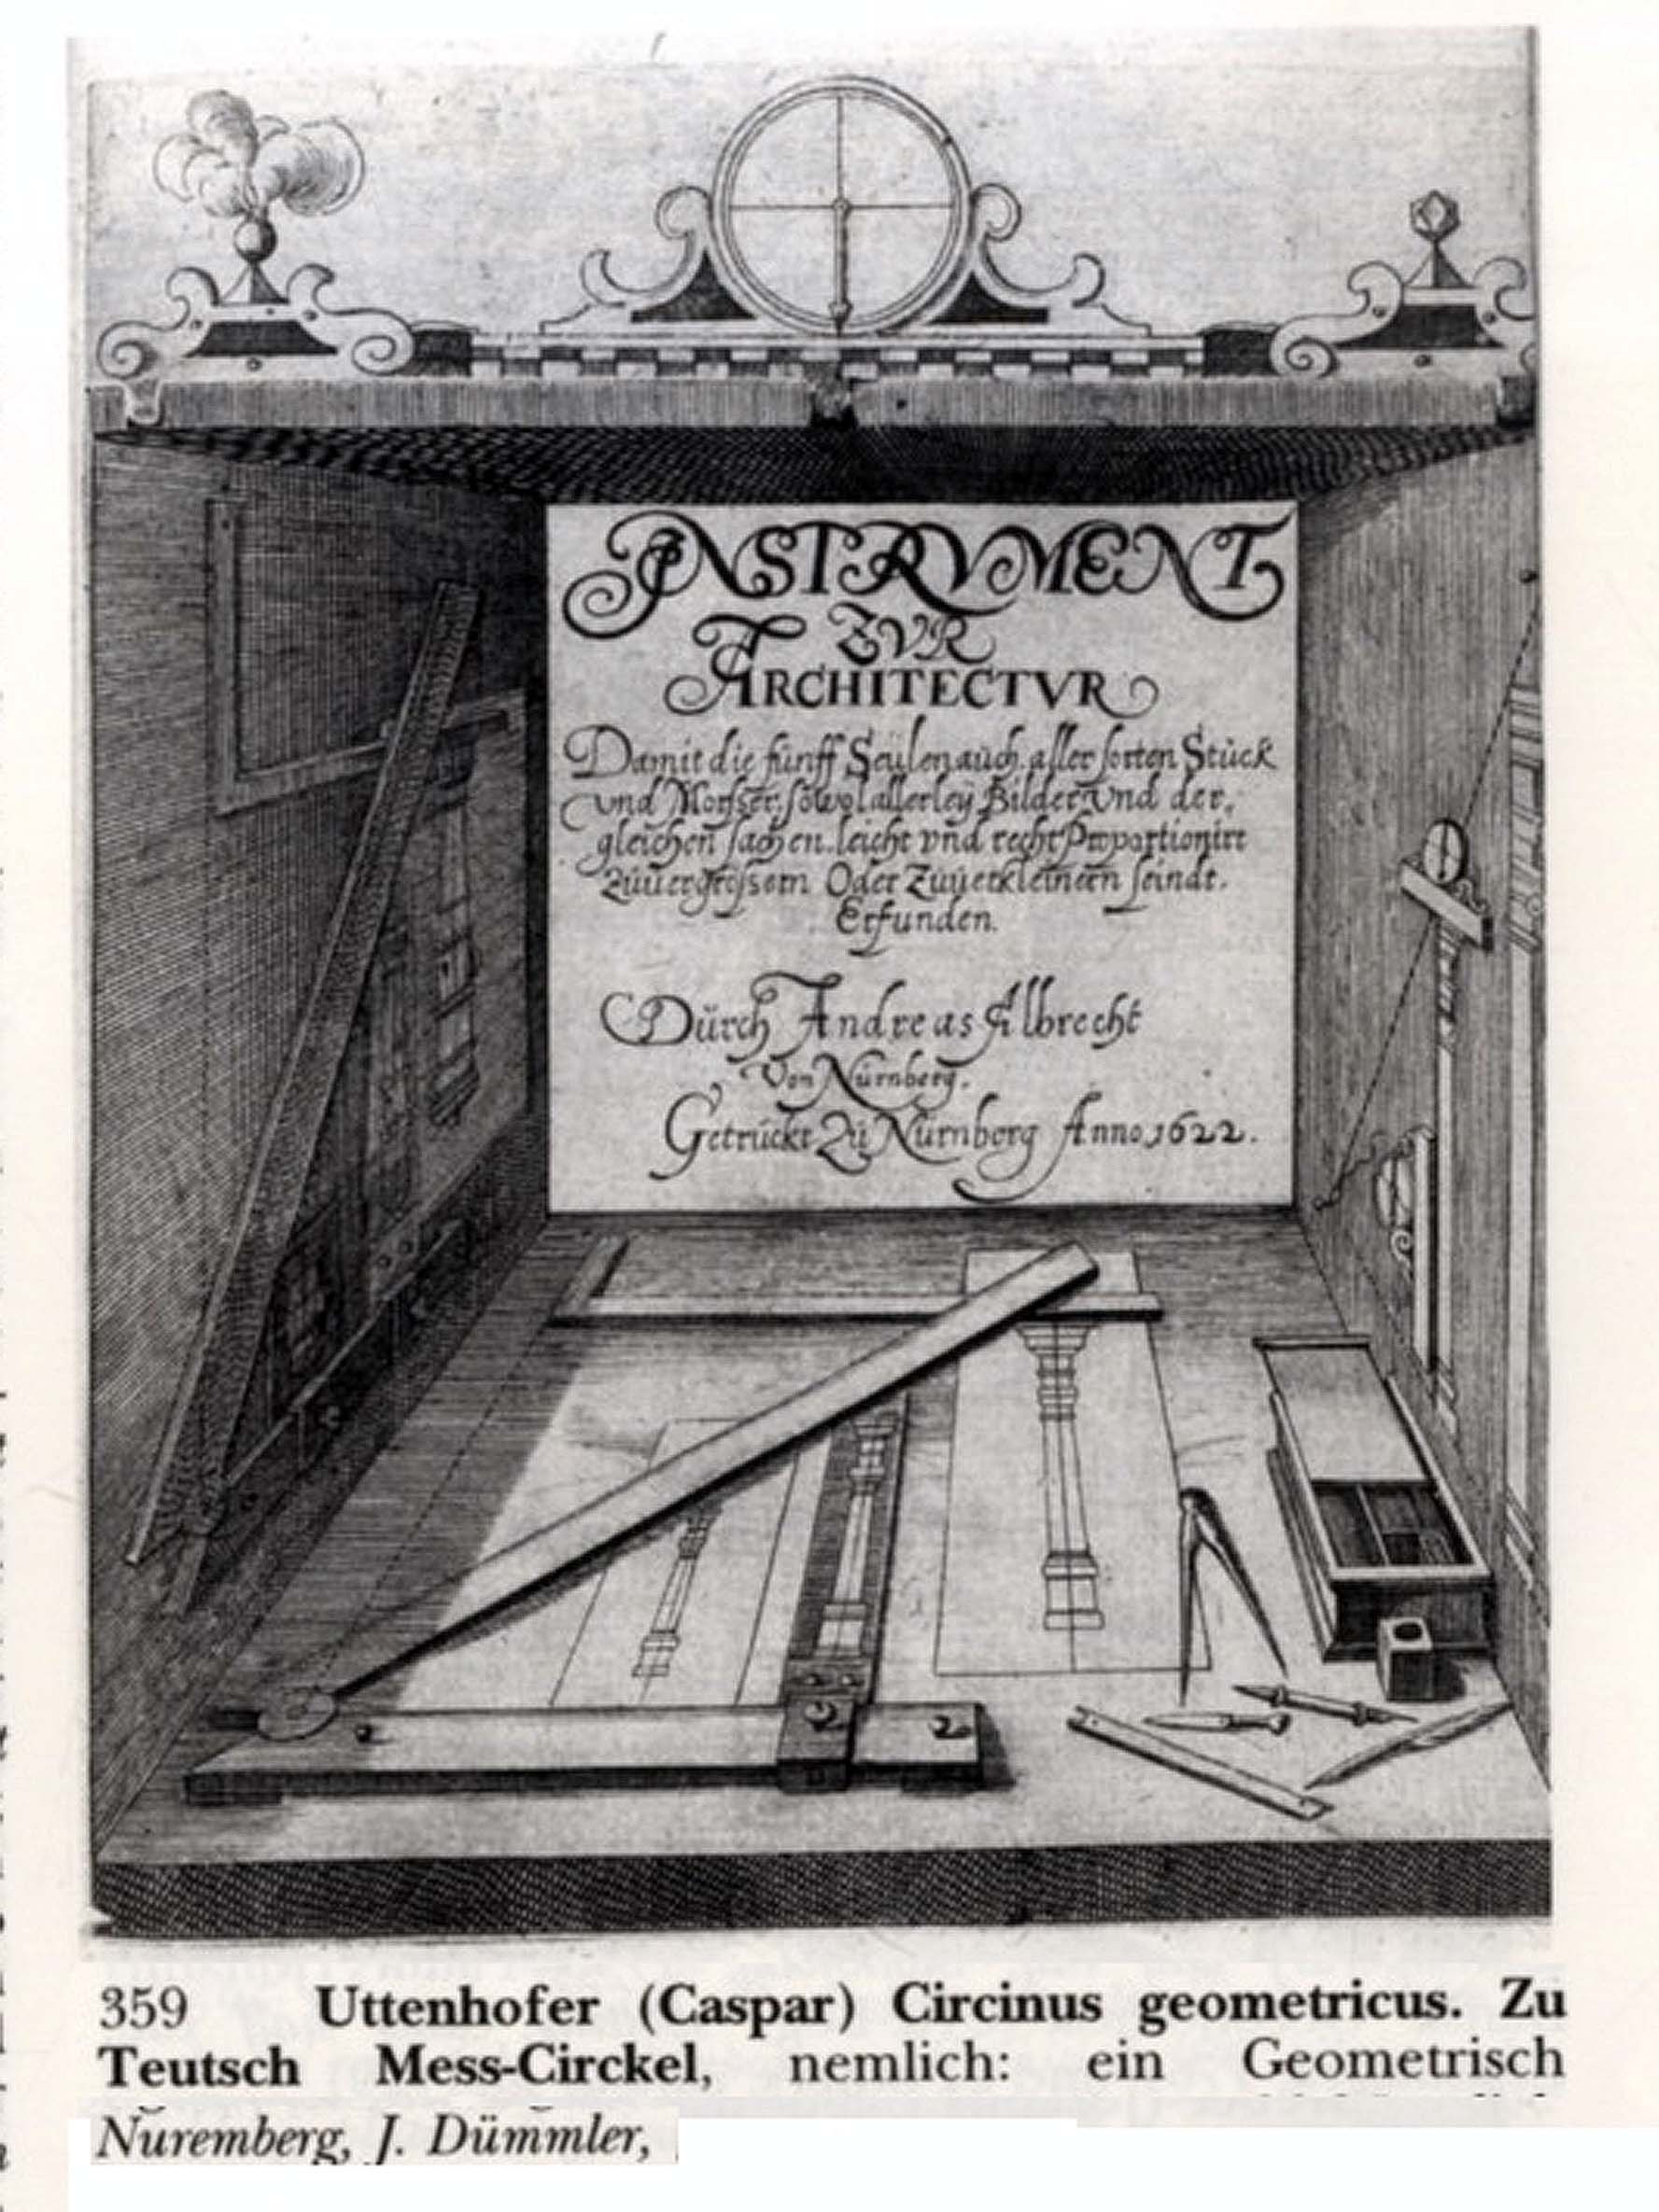 INSTRVMENT
ZVR
ARCHITECTVR
Damit die fünff Seülen aüch aller sorten Stück
vnd Morser, sowol allerleÿ Bilder vnd der,
gleichen sachen leicht vnd recht Proportionirt
Züuergrössern Oder Züuerkleinern seindt.
Erfunden.
Dürch Andreas Albrecht
Von Nürnberg.
Getrückt Zü Nürnberg Anno 1622.
359 Uttenhofer (Caspar) Circinus geometricus. Zu
Teutsch Mess-Circkel, nemlich: ein Geometrisch
Nuremberg, J. Dümmler,